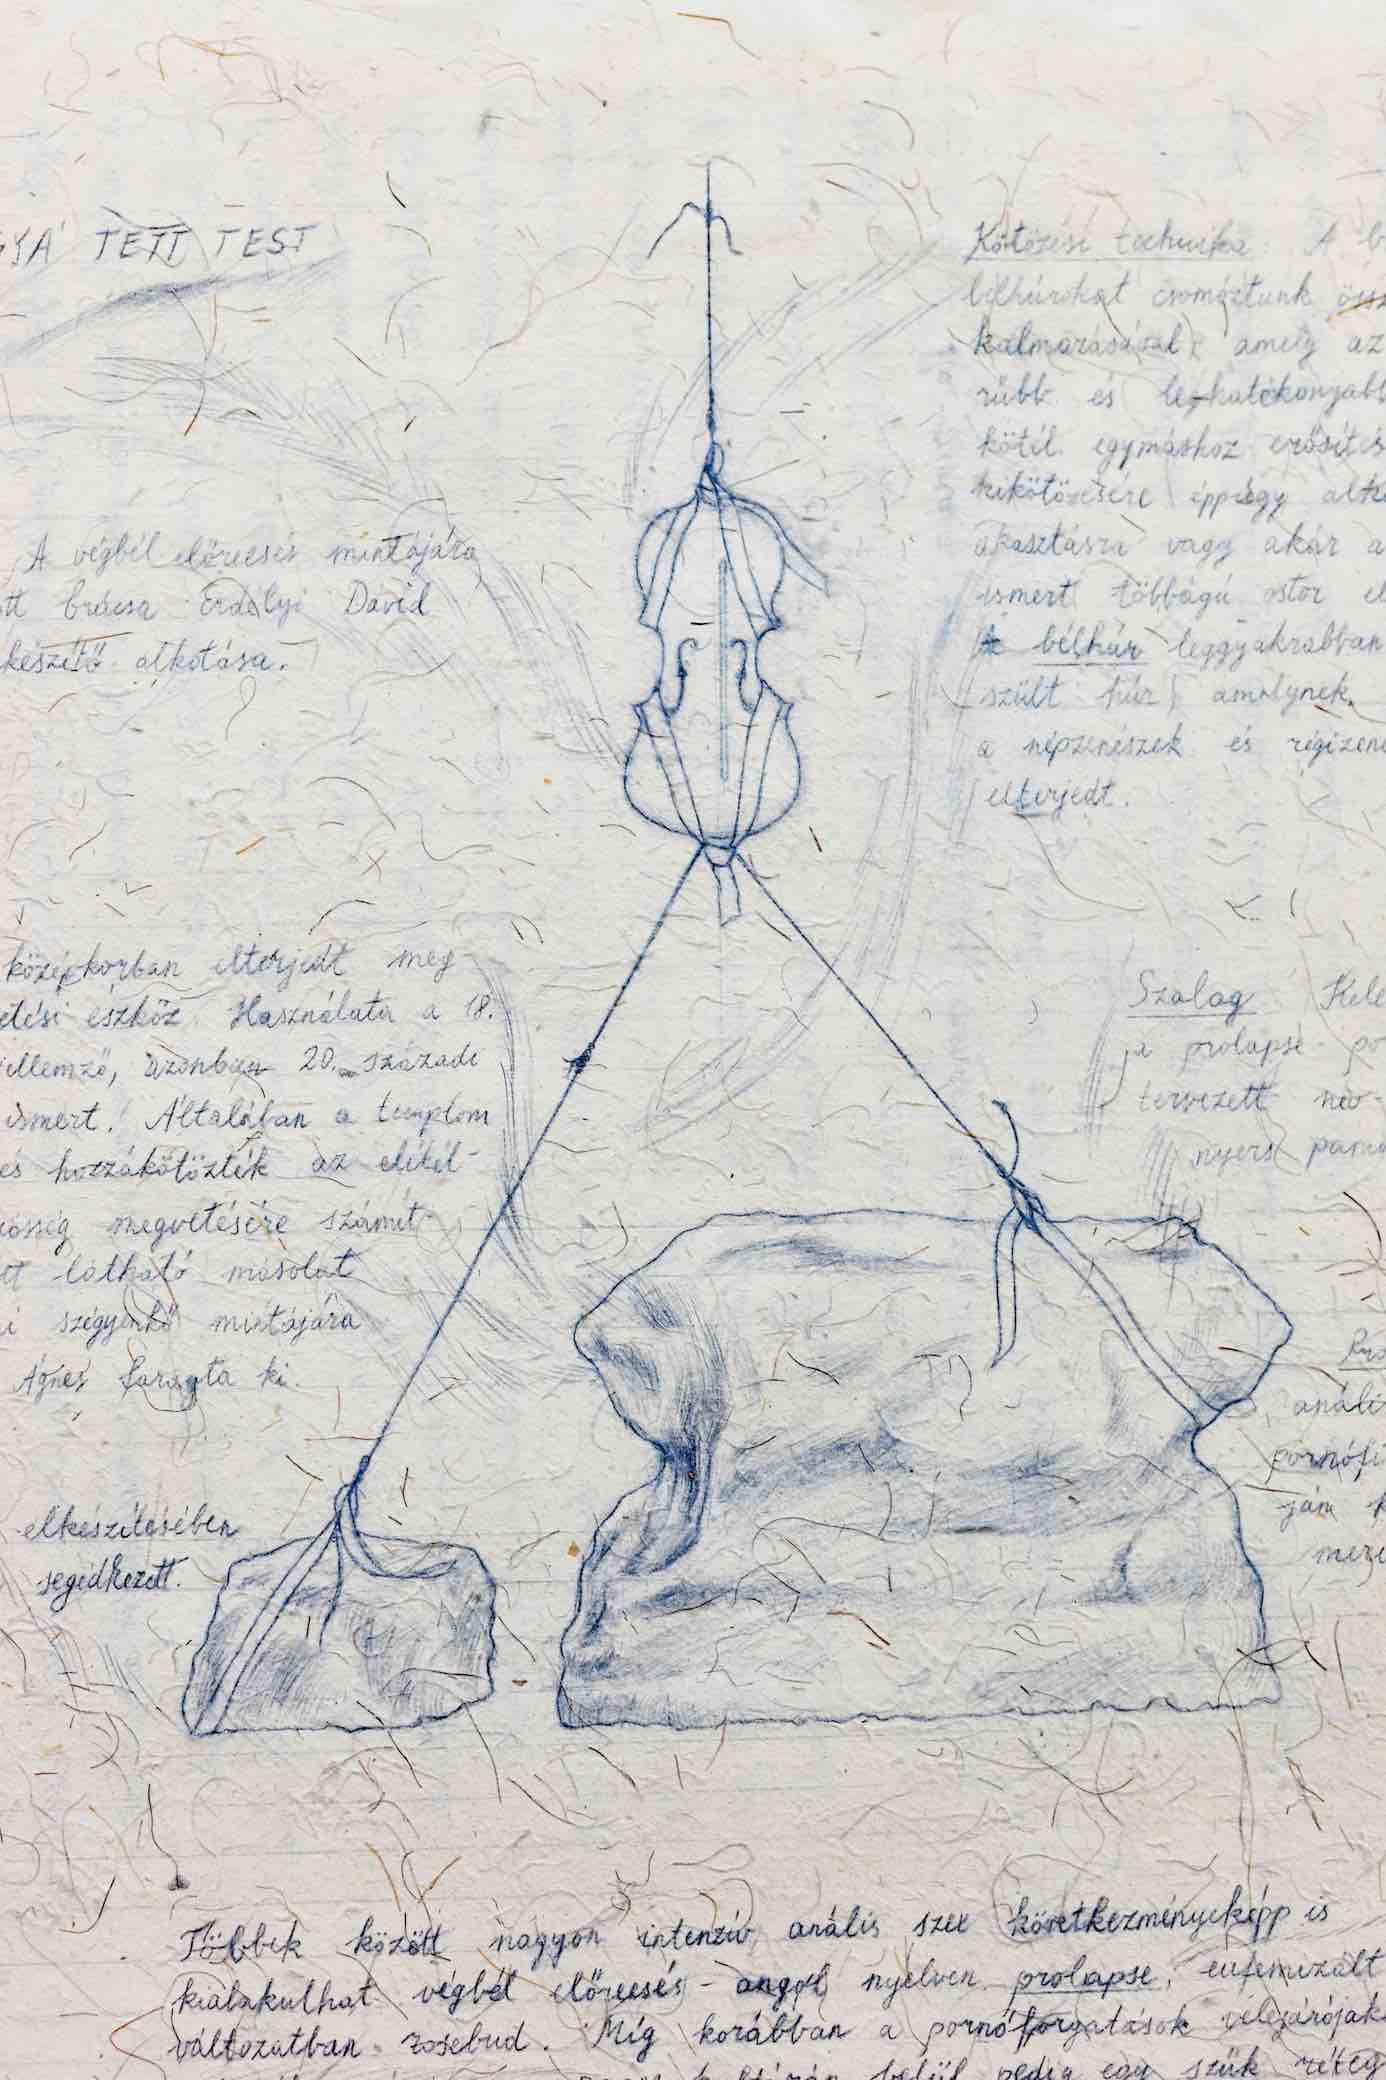 GYÁ TETT TEST
A végbél előreesés mintájára
ott brácsa Erdélyi Dávid
készítő alkotása.
középkorban elterjedt meg
etési eszköz. Használata a 18.
jellemző, azonban 20. századi
ismert. Általában a templom
és hozzákötözték az elítél-
össég megvetésére számít
tt látható másolat
i szégyenkő mintájára
Ágnes faragta ki.
elkészítésében
segédkezett.
Kötözési technika: A b
bélhúrokat csomóztunk össz
kalmazásával, amely az
rűbb és leghatékonyabb
kötél egymáshoz erősítés
kikötözésére éppúgy alk
akasztásra vagy akár a
ismert többágú ostor el
A bélhúr leggyakrabban
szült húr, amelynek
a népzenészek és régizene
elterjedt.
Szalag Kele
a prolapse po
tervezett név-
nyers pamu
análi
pornófi
ján
Többek között nagyon intenzív anális szex következményeképp is
kialakulhat végbél előreesés - angol nyelven prolapse, eufemizált
változatban rosebud. Míg korábban a pornóforgatások velejárójak
belül pedig egy szűk réteg